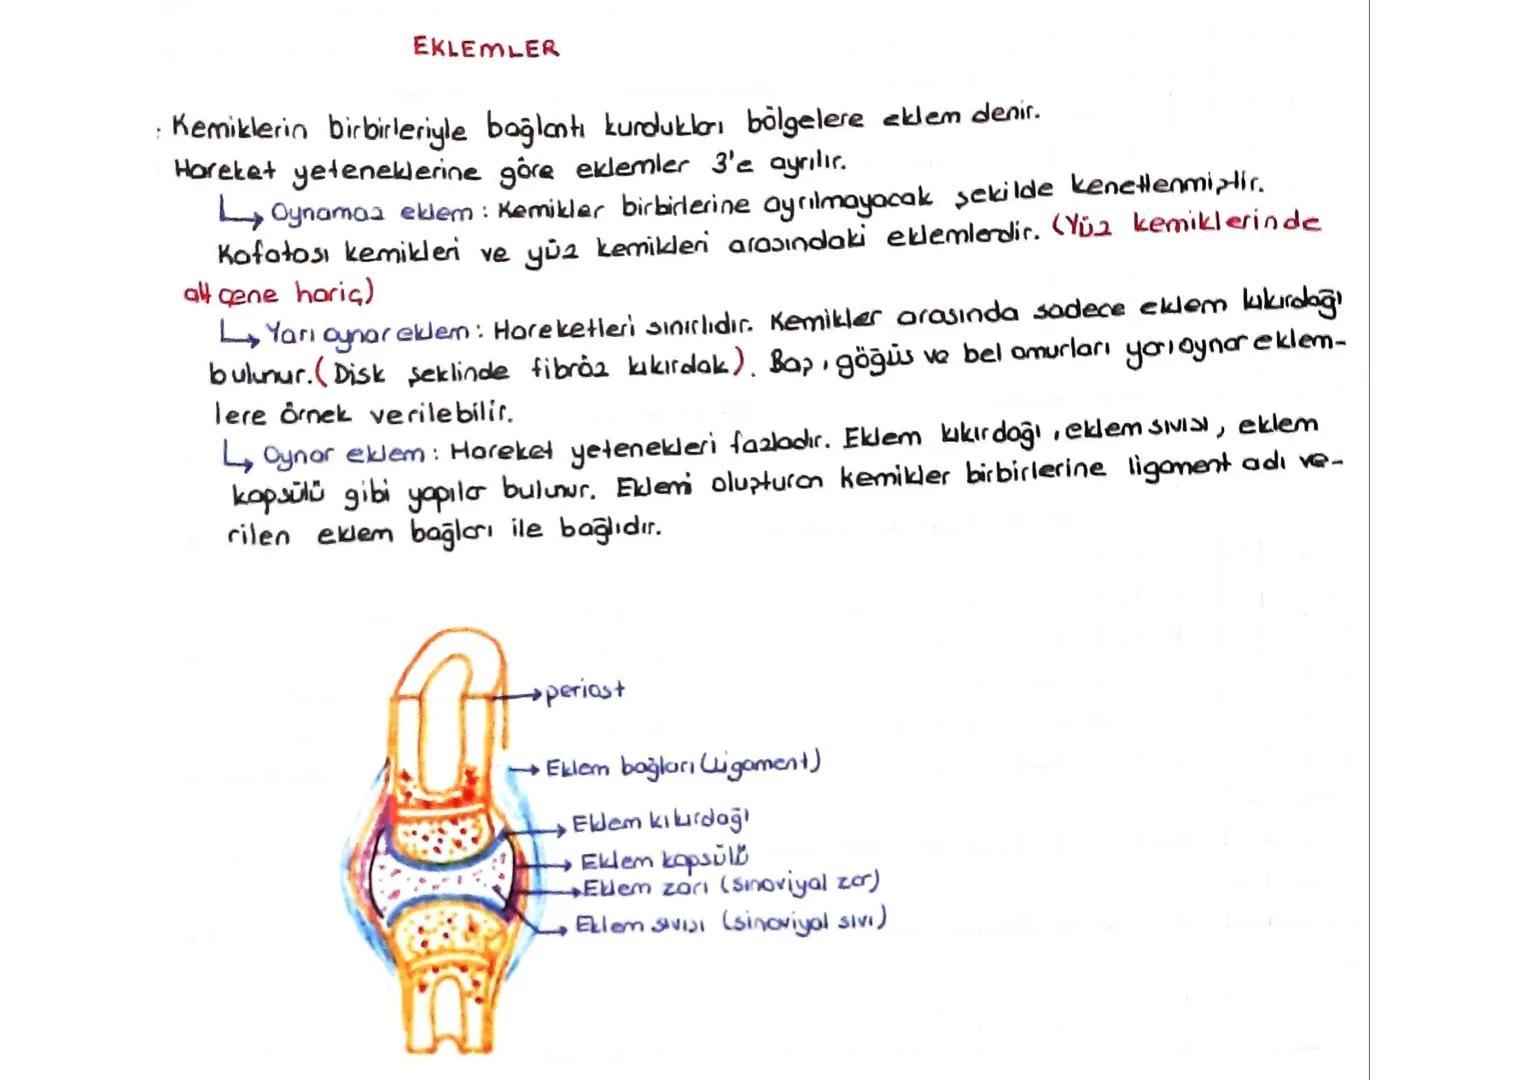 EKLEMLER
: Kemiklerin birbirleriyle bağlantı kurdukları bölgelere eklem denir.
Hareket yeteneklerine göre eklemler 3'e ayrılır.
↳ Oynamaz eklem : Kemikler birbirlerine ayrılmayacak şekilde kenetlenmiştir.
Kafatası kemikleri ve yüz kemikleri arasındaki eklemlerdir. (Yüz kemiklerinde
alt çene hariç)
↳ Yarı oynar eklem : Hareketleri sınırlıdır. Kemikler arasında sadece eklem kıkırdağı
bulunur. (Disk şeklinde fibröz kıkırdak). Baş, göğüs ve bel omurları yarı oynar eklem-
lere örnek verilebilir.
↳ Oynar eklem : Hareket yetenekleri fazladır. Eklem kıkırdağı, eklem sıvısı, eklem
kapsülü gibi yapılar bulunur. Eklemi oluşturan kemikler birbirlerine ligament adı ve-
rilen eklem bağları ile bağlıdır.
→ periost
→ Eklem bağları (Ligament)
→ Eklem kıkırdağı
→ Eklem kapsülü
→ Eklem zarı (sinoviyal zar)
→ Eklem sıvısı (sinoviyal sıvı)